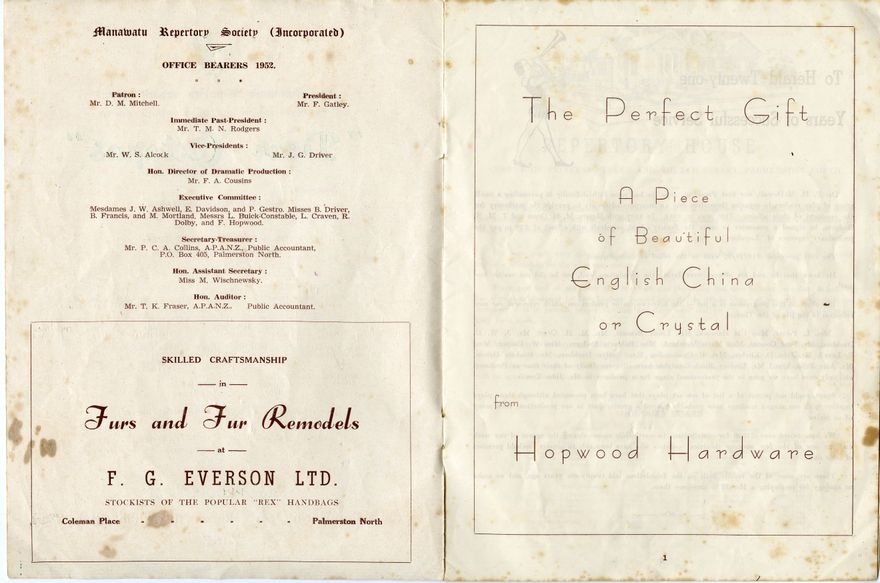 Manawatu Repertory Society (Incorporated)
OFFICE BEARERS 1952.
* * *
Patron : President :
Mr. D. M. Mitchell. Mr. F. Gatley.
Immediate Past-President :
Mr. T. M. N. Rodgers
Vice-Presidents :
Mr. W. S. Alcock Mr. J. G. Driver
Hon. Director of Dramatic Production :
Mr. F. A. Cousins
Executive Committee :
Mesdames J. W. Ashwell, E. Davidson, and P. Gestro. Misses B. Driver,
B. Francis, and M. Mortland, Messrs L. Buick-Constable, L. Craven, R.
Dolby, and F. Hopwood.
Secretary-Treasurer :
Mr. P. C. A. Collins, A.P.A.N.Z., Public Accountant,
P.O. Box 405, Palmerston North.
Hon. Assistant Secretary :
Miss M. Wischnewsky.
Hon. Auditor :
Mr. T. K. Fraser, A.P.A.N.Z., Public Accountant.
SKILLED CRAFTSMANSHIP
— in —
Furs and Fur Remodels
— at —
F. G. EVERSON LTD.
STOCKISTS OF THE POPULAR "REX" HANDBAGS
Coleman Place - - - - - - Palmerston North
The Perfect Gift
A Piece
of Beautiful
English China
or Crystal
from
Hopwood Hardware
1